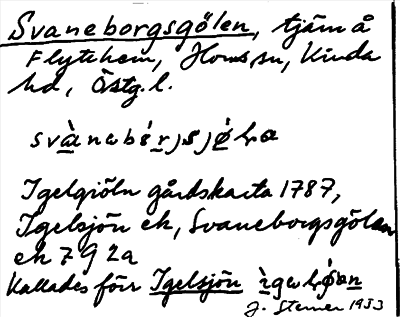 Svaneborgsgölen, tjärn å
Flytthem, Horns sn, Kinda
hd, Östg.l.
Igelgiöln gårdskarta 1787,
Igelsjön ek, Svaneborgsgölen
ek 7 G 2a
Kallades förr Igelsjön
J. Sterner 1933